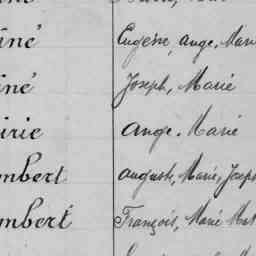 iné Eugène, Ange, Mari
iné Joseph, Marie
irie Ange. Marie
mbert Auguste, Marie, Josep
mbert François, Marie Mat